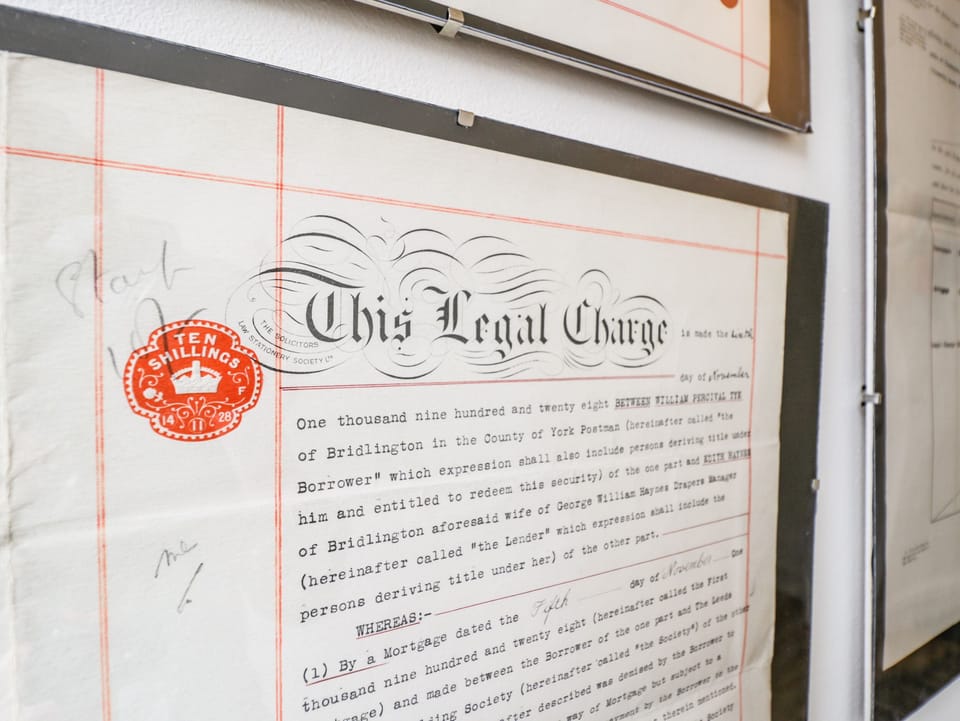 This Legal Charge
is made the
THE SOLICITORS
LAW STATIONERY SOCIETY LTD
day of November
TEN
SHILLINGS
F
14 11 28
One thousand nine hundred and twenty eight BETWEEN WILLIAM PERCIVAL TYE
of Bridlington in the County of York Postman (hereinafter called "the
Borrower" which expression shall also include persons deriving title under
him and entitled to redeem this security) of the one part and EDITH HAYNES
of Bridlington aforesaid wife of George William Haynes Drapers Manager
(hereinafter called "the Lender" which expression shall include the
persons deriving title under her) of the other part.
WHEREAS:-
(1) By a Mortgage dated the Fifth day of November One
thousand nine hundred and twenty eight (hereinafter called the First
Mortgage) and made between the Borrower of the one part and The Leeds
Building Society (hereinafter called "the Society") of the other
after described was demised by the Borrower to
way of Mortgage but subject to a
payment by the Borrower to the
therein mentioned.
Society